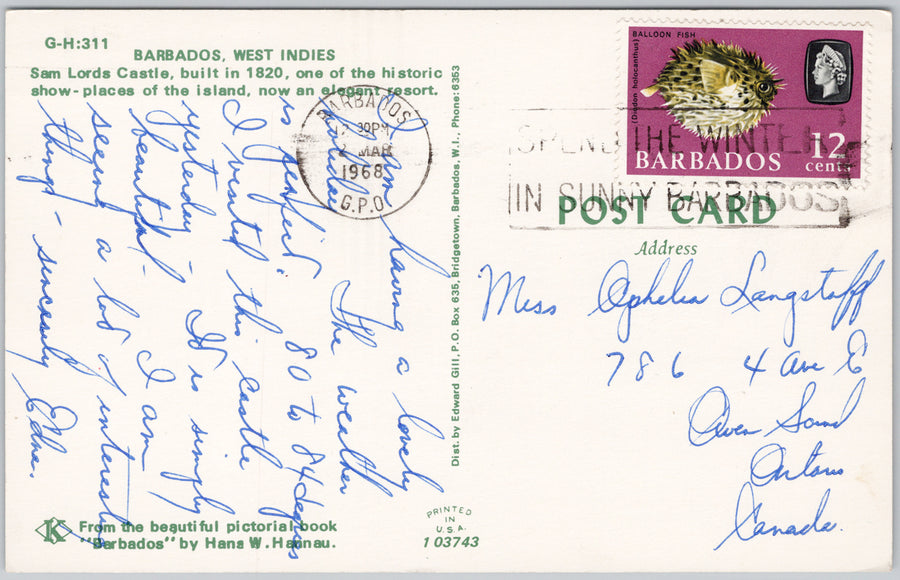 G-H:311
BARBADOS, WEST INDIES
Sam Lords Castle, built in 1820, one of the historic
show-places of the island, now an elegant resort.
I am having a lovely
The weather
is perfect. 80 to 84 degrees
I visited this castle
yesterday - It is simply
beautiful - I am
seeing a lot of interesting
things - sincerely Edna.
From the beautiful pictorial book
"Barbados" by Hans W. Hannau.
K
Dist. by Edward Gill, P.O. Box 635, Bridgetown, Barbados, W.I., Phone: 6353
PRINTED
IN
U.S.A.
103743
BARBADOS
30PM
2 MAR
1968
G.P.O.
SPEND THE WINTER
IN SUNNY BARBADOS
BALLOON FISH
(Diodon holocanthus)
BARBADOS
12
cents
POST CARD
Address
Miss Ophelia Langstaff
786 4 Ave E
Owen Sound
Ontario
Canada.